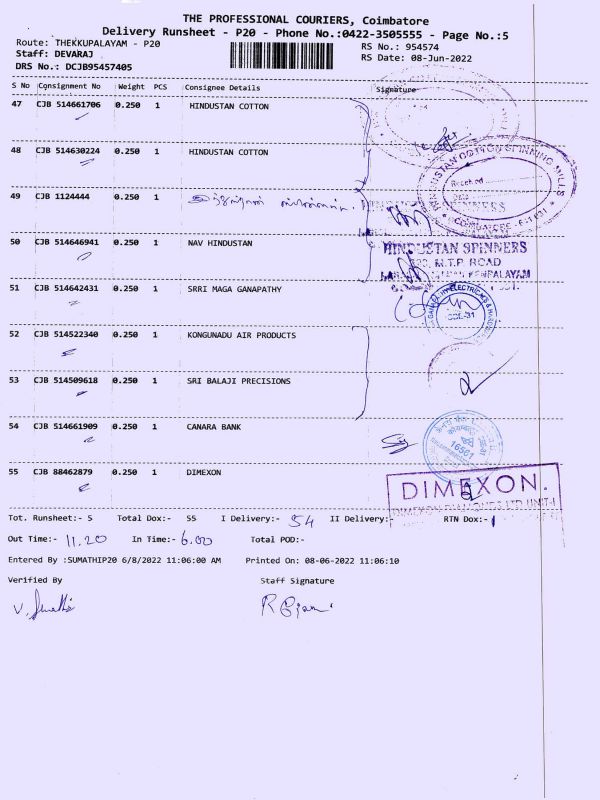 THE PROFESSIONAL COURIERS, Coimbatore
Delivery Runsheet - P20 - Phone No.:0422-3505555 - Page No.:5
Route: THEKKUPALAYAM - P20
RS No.: 954574
Staff: DEVARAJ
RS Date: 08-Jun-2022
DRS No.: DCJB95457405
S No Consignment No Weight PCS Consignee Details Signature
47 CJB 514661706 0.250 1 HINDUSTAN COTTON
48 CJB 514630224 0.250 1 HINDUSTAN COTTON
HINDUSTAN COTTON SPINNING MILLS
Received
49 CJB 1124444 0.250 1
50 CJB 514646941 0.250 1 NAV HINDUSTAN
HINDUSTAN SPINNERS
M.T.P. ROAD
51 CJB 514642431 0.250 1 SRRI MAGA GANAPATHY
CBE-31
52 CJB 514522340 0.250 1 KONGUNADU AIR PRODUCTS
53 CJB 514509618 0.250 1 SRI BALAJI PRECISIONS
54 CJB 514661909 0.250 1 CANARA BANK
16561
55 CJB 88462879 0.250 1 DIMEXON
DIMEXON
Tot. Runsheet:- 5 Total Dox:- 55 I Delivery:- 54 II Delivery:- RTN Dox:- 1
Out Time:- 11.20 In Time:- 6.00 Total POD:-
Entered By :SUMATHIP20 6/8/2022 11:06:00 AM Printed On: 08-06-2022 11:06:10
Verified By Staff Signature